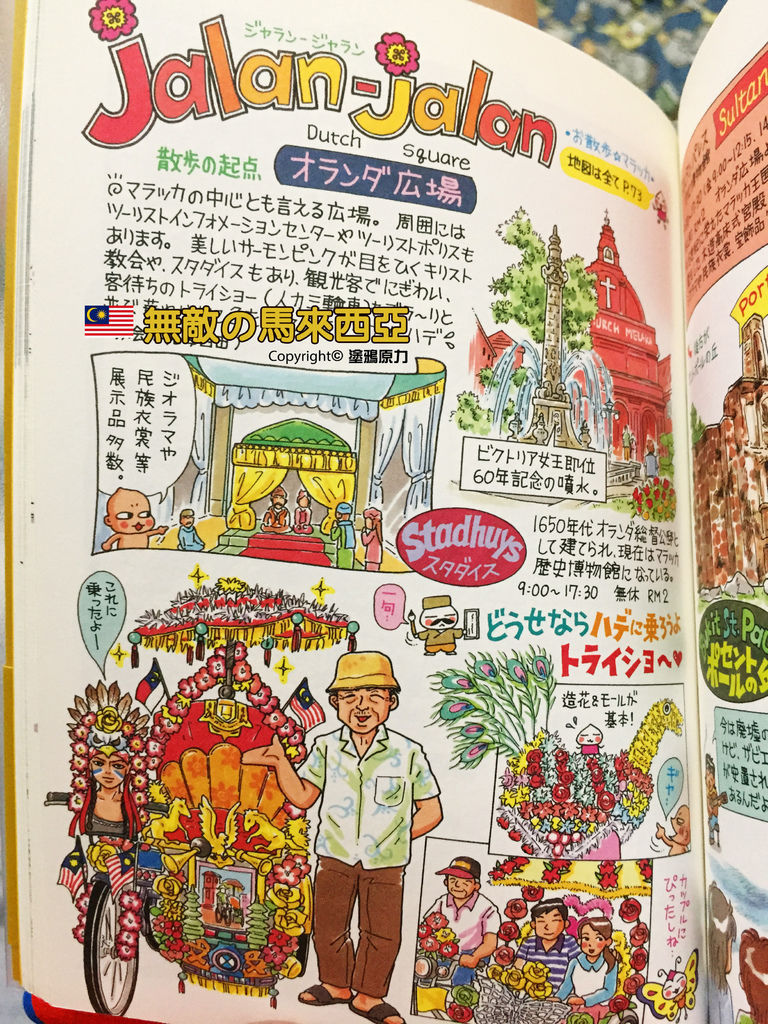 ジャラン-ジャラン
Jalan-Jalan
・お散歩☆マラッカ・
地図は全てP.73
Dutch Square
散歩の起点
オランダ広場
◎マラッカの中心とも言える広場。周囲には
ツーリストインフォメーションセンターやツーリストポリスも
あります。美しいサーモンピンクが目をひくキリスト
教会や、スタダイスもあり、観光客でにぎわい、
客待ちのトライショー(人力三輪車)
無敵の馬來西亞
Copyright© 塗鴉原力
CHURCH MELAKA
ビクトリア女王即位
60年記念の噴水。
ジオラマや
民族衣裳等
展示品多数。
Stadhuys
スタダイス
1650年代オランダ総督公邸と
して建てられ、現在はマラッカ
歴史博物館になっている。
9:00~17:30 無休 RM2
これに
乗ったよー
一句…
どうせなら ハデに乗ろうよ
トライショ〜♥
造花&モールが
基本!
ギャー
カップルに
ぴったしね…
Sultan
9:00~12:15、14
オランダ広場
Port
St. Pau
今は廃墟の
けど、ザビエ
が安置され
あるんだよ